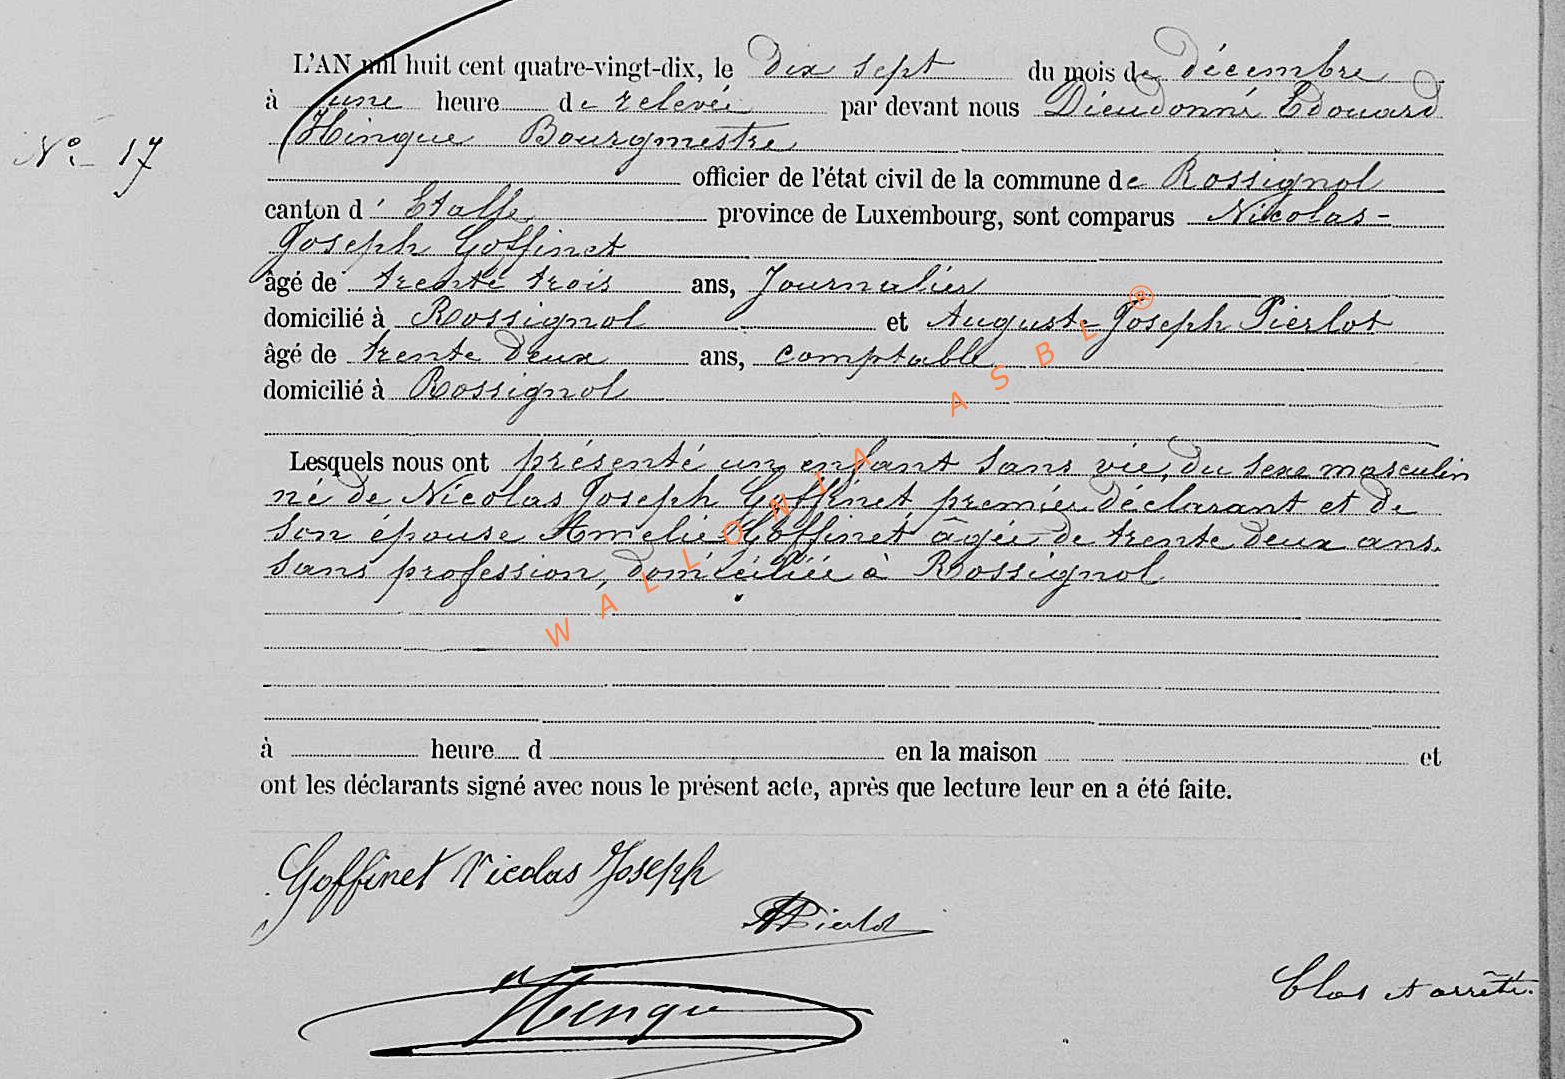 L'AN mil huit cent quatre-vingt-dix, le dix sept du mois de décembre
à une heure de relevée par devant nous Dieudonné Edouard
Nº 17
Hinque Bourgmestre
officier de l'état civil de la commune de Rossignol
canton d' Etalle province de Luxembourg, sont comparus Nicolas-
Joseph Goffinet
âgé de trente trois ans, Journalier
domicilié à Rossignol et Auguste Joseph Pierlot
âgé de trente deux ans, comptable
domicilié à Rossignol
Lesquels nous ont présenté un enfant sans vie, du sexe masculin
né de Nicolas Joseph Goffinet premier déclarant et de
son épouse Amélie Goffinet âgée de trente deux ans.
sans profession, domiciliée à Rossignol
à heure d en la maison et
ont les déclarants signé avec nous le présent acte, après que lecture leur en a été faite.
Goffinet Nicolas Joseph
APierlot
Hinque
Clos et arrêté.
WALLONIA ASBL ®